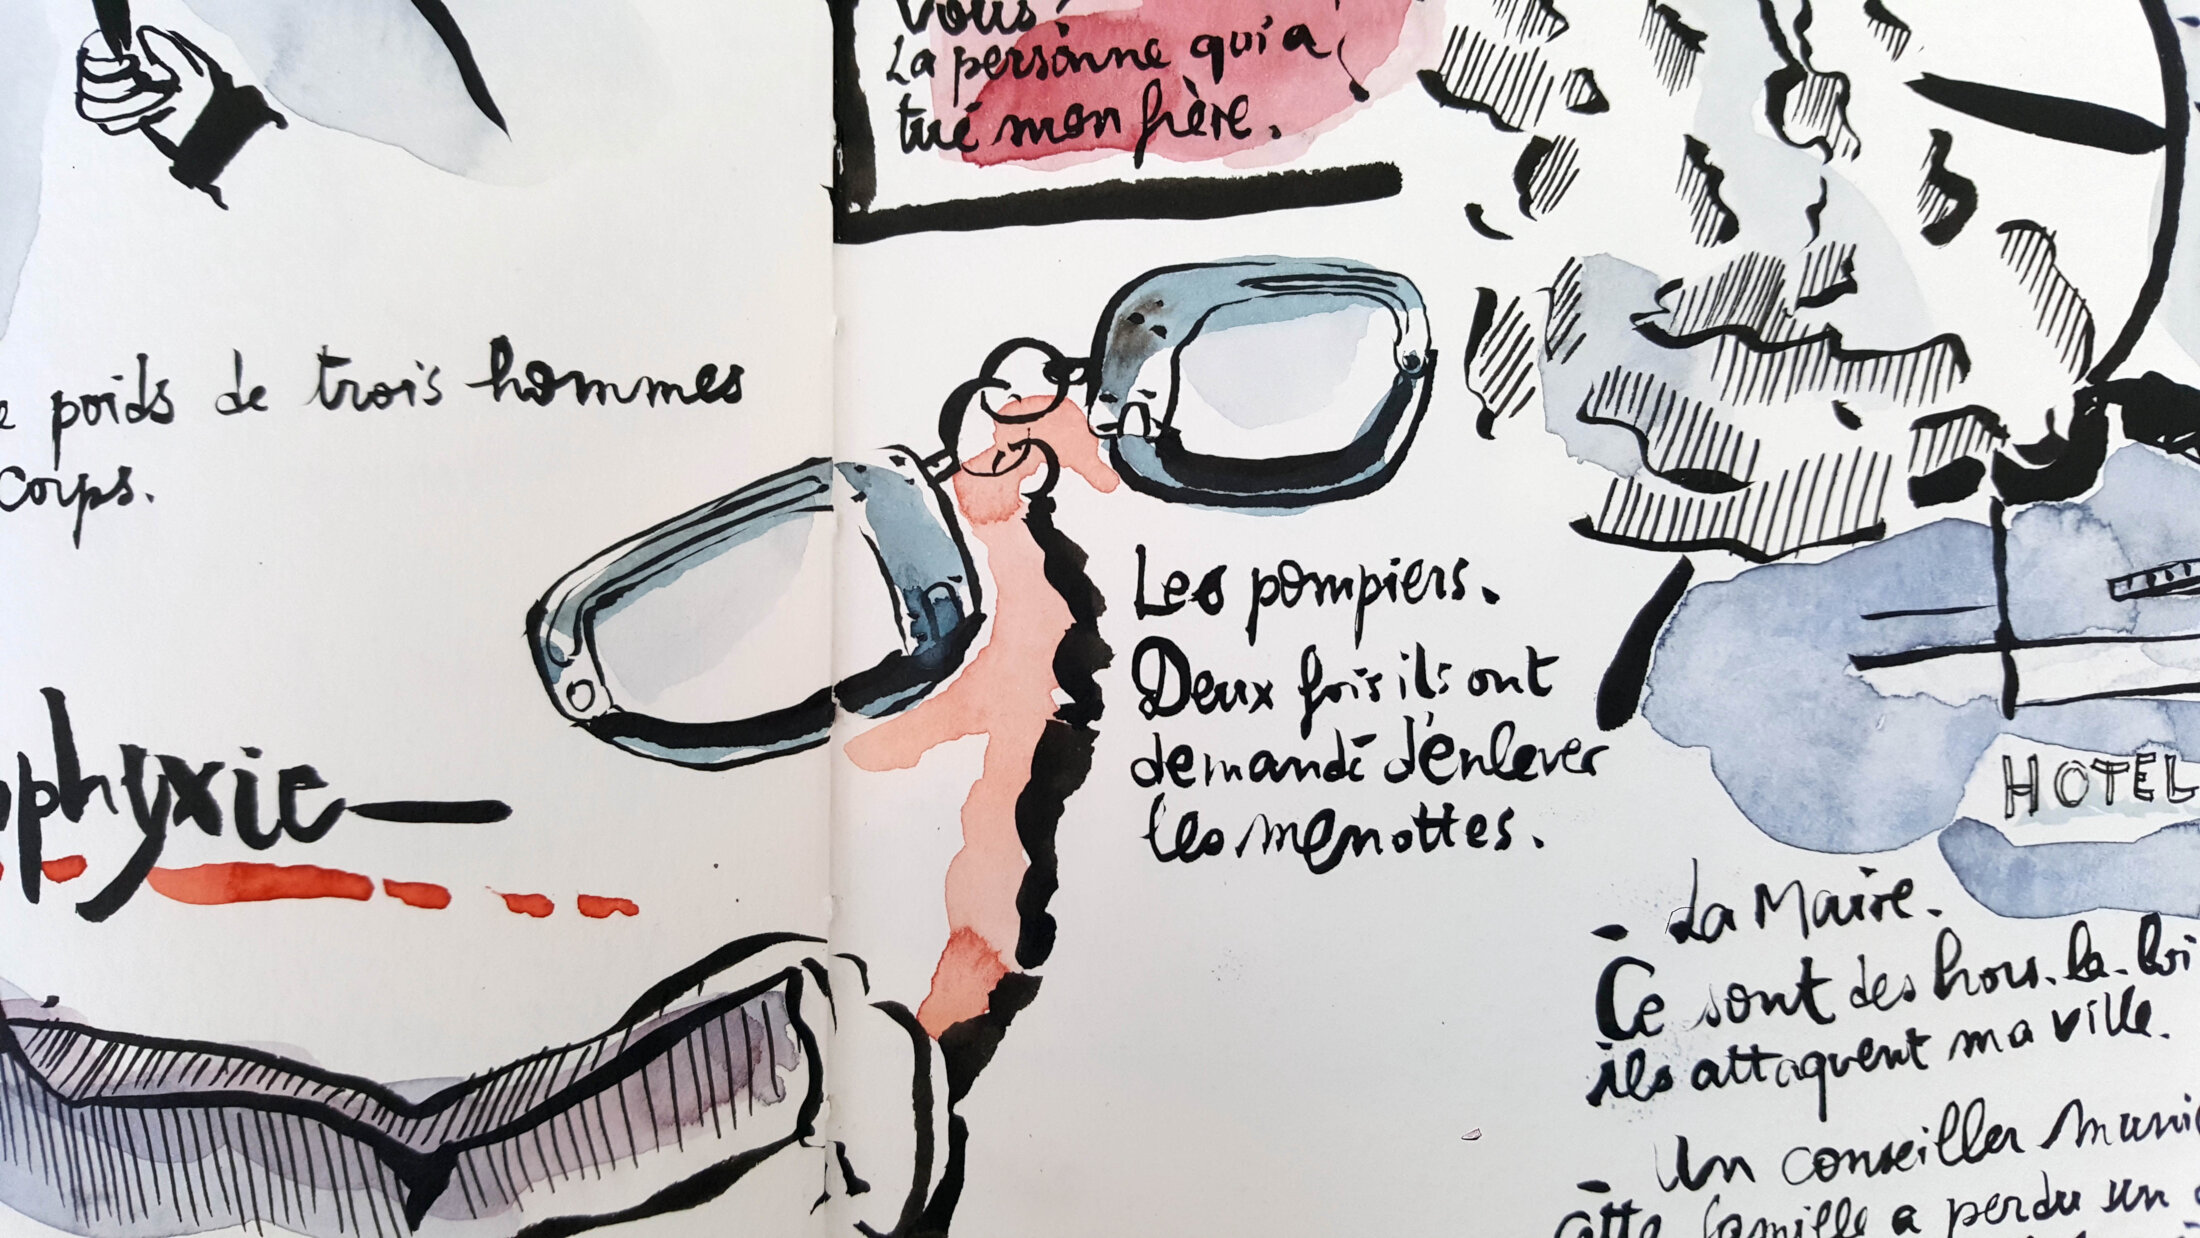 vous?
La personne qui a
tué mon frère.
poids de trois hommes
corps.
phyxie
Les pompiers.
Deux fois ils ont
demandé d'enlever
les menottes.
HOTEL
- La Maire.
Ce sont des hors-la-loi
ils attaquent ma ville.
- Un conseiller munic
cette famille a perdu un